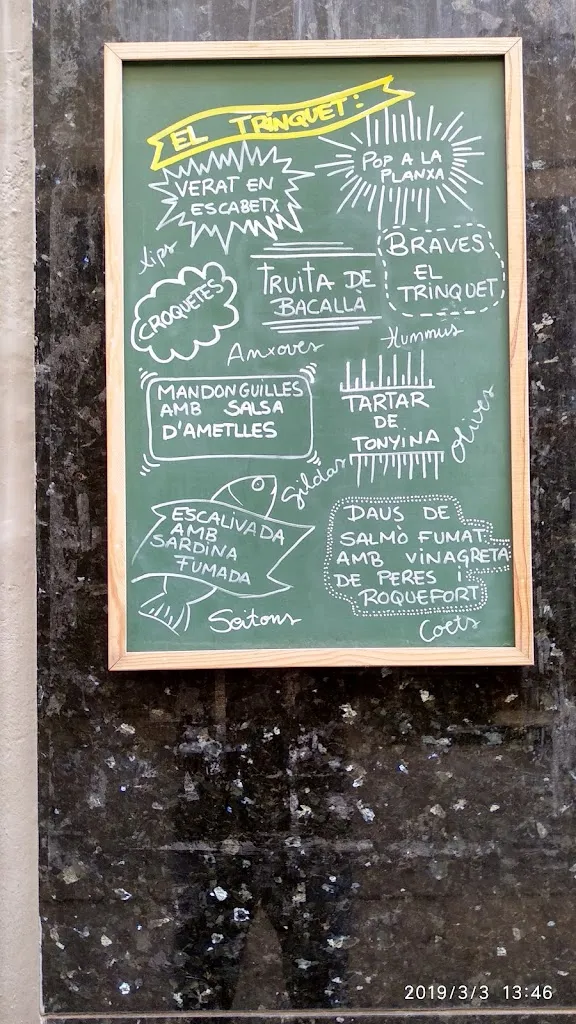 EL TRINQUET:
VERAT EN
ESCABETX
POP A LA
PLANXA
xips
CROQUETES
TRUITA DE
BACALLÀ
BRAVES
EL
TRINQUET
Anxoves
Hummus
MANDONGUILLES
AMB SALSA
D'AMETLLES
TARTAR
DE
TONYINA
Olives
Gildas
ESCALIVADA
AMB
SARDINA
FUMADA
DAUS DE
SALMÒ FUMAT
AMB VINAGRETA
DE PERES i
ROQUEFORT
Seitons
Coets
2019/3/3 13:46